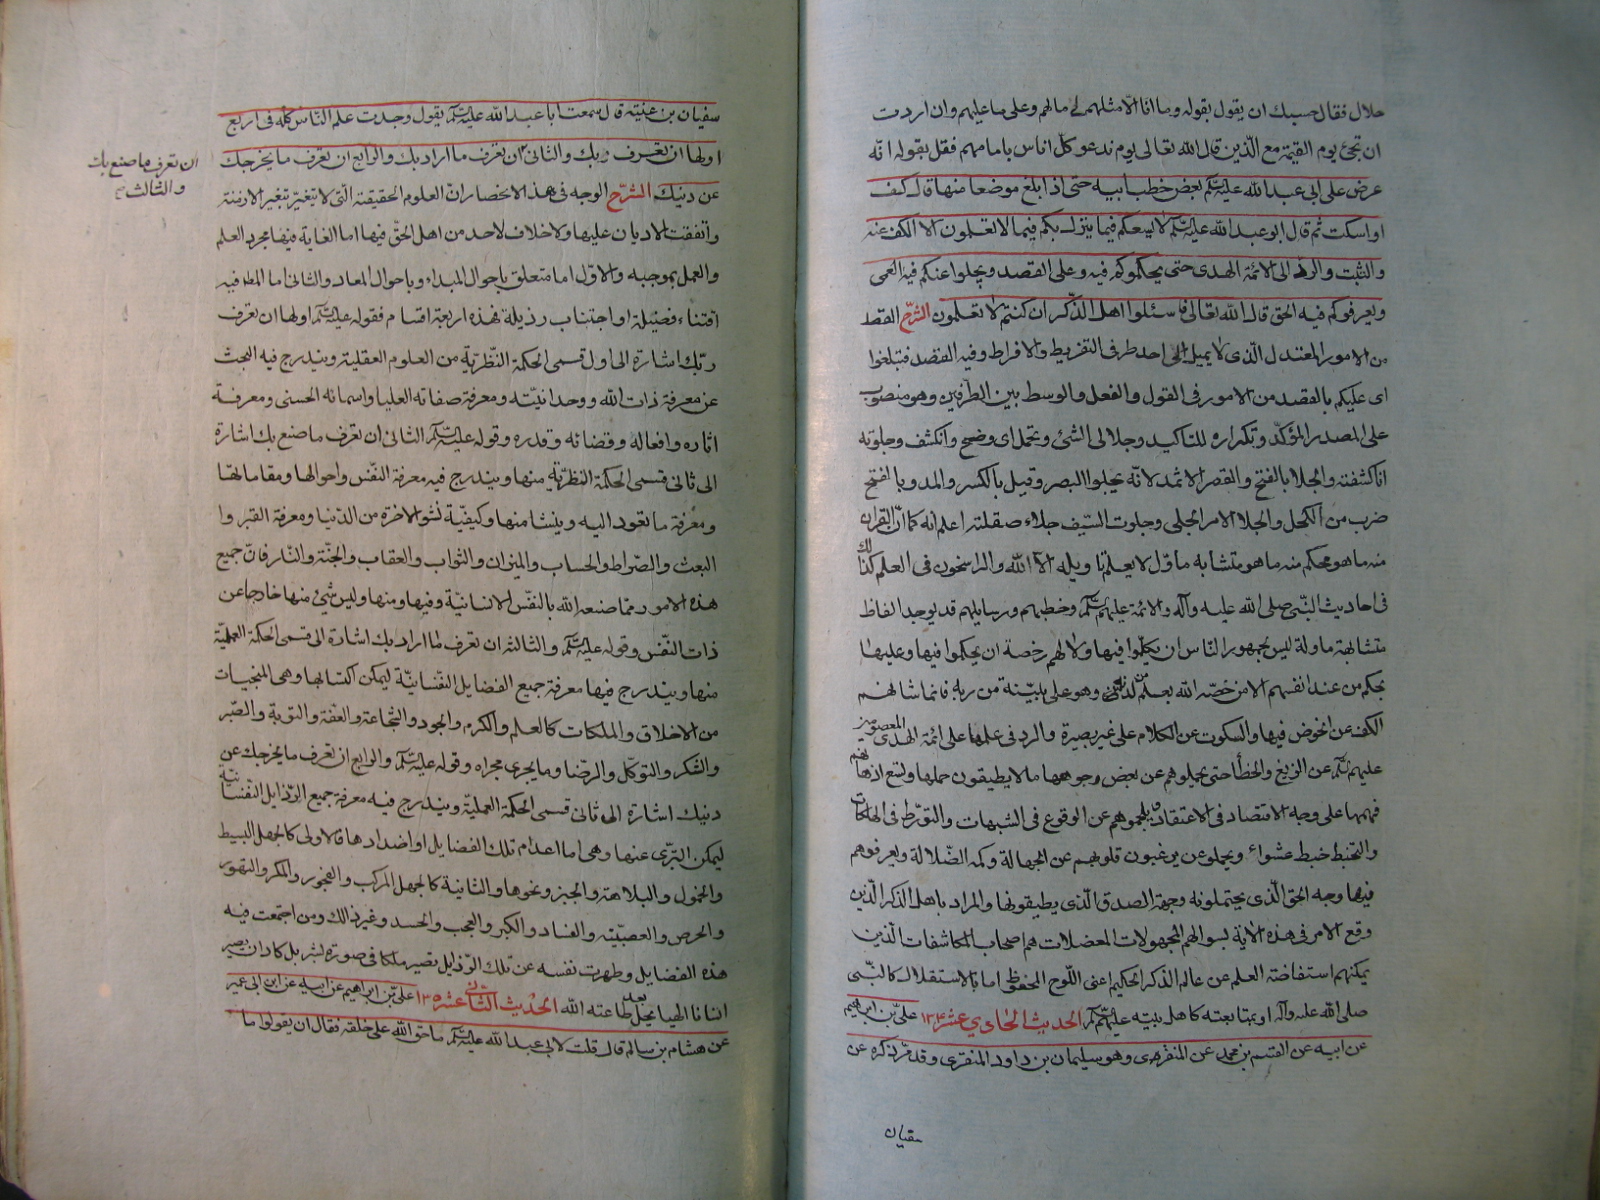 حلال فقال حسبك ان يقول بقوله وما انا الا مثلهم لي مالهم وعلى ما عليهم وان اردت
ان تجئ يوم القيمة مع الذين قال الله تعالى يوم ندعو كل اناس بامامهم فقل بقوله انه
عرض على ابى عبد الله عليه السلام بعض خطب ابيه حتى اذا بلغ موضعا منها قال كف
او اسكت ثم قال ابو عبد الله عليه السلام لا يسعكم فيما ينزل بكم فيما لا تعلمون الا الكف عنه
والتثبت والرد الى الائمة الهدى حتى يحكموكم فيه وعلى القصد ويجلوا عنكم فيه العمى
ويعرفوكم فيه الحق قال الله تعالى فاسئلوا اهل الذكر ان كنتم لا تعلمون الشرح القصد
من الامور المعتدل الذى لا يميل الى احد طرفى التفريط والافراط وفيه القصد فتبلغوا
اى عليكم بالقصد من الامور فى القول والفعل والوسط بين الطرفين وهو منصوب
على المصدر المؤكد وتكراره للتاكيد وجلا لى الشئ وتجلى اى وضح وانكشف وجلوته
انا كشفته والجلا بالفتح والقصر الاثمد لانه يجلوا البصر وقيل بالكسر والمد وبالفتح
ضرب من الكحل والجلا الامر الجلى وجلوت السيف جلاء صقلته اعلم انه كما ان القران
منه ما هو محكم منه ما هو متشابه ماؤل لا يعلم تاويله الا الله والراسخون فى العلم كذلك
فى احاديث النبى صلى الله عليه وآله والائمة عليهم السلام وخطبهم ورسايلهم قد يوجد الفاظ
متشابهة ماولة ليس لجمهور الناس ان يتكلموا فيها ولا لهم رخصة ان يحكموا فيها وعليها
بحكم من عند انفسهم الا من خصه الله بعلم من لدنه وهو على بينة من ربه فانما شانهم
الكف عن الخوض فيها والسكوت عن الكلام على غير بصيرة والرد فى علمها على ائمة الهدى المعصومين
عليهم السلام عن الزيغ والخطأ حتى يحملوهم عن بعض وجوهها ما لا يطيقون حملها ولتسع اذهانهم
فهمها على وجه الاقتصاد فى الاعتقاد ويلجموهم عن الوقوع فى الشبهات والتورط فى الهلكات
والتخبط خبط عشواء ويجلو عن عيون قلوبهم عن الجهالة وكمه الضلالة ويعرفوهم
فيها وجه الحق الذى يحتملونه وجهة الصدق الذى يطيقونها والمراد باهل الذكر الذين
وقع الامر فى هذه الاية بسوالهم المجهولات المعضلات هم اصحاب المكاشفات الذين
يمكنهم استفاضة العلم عن عالم الذكر الحكيم اعنى اللوح المحفوظ اما بالاستقلال كالنبى
صلى الله عليه وآله او بمتابعته كاهل بيته عليهم السلام الحديث الحادي عشر على بن ابراهيم
عن ابيه عن القسم بن محمد عن المنقرى وهو سليمان بن داود المنقرى وقد مر ذكره عن
سفيان
سفيان بن عيينة قال سمعت ابا عبد الله عليه السلام يقول وجدت علم الناس كله فى اربع
اولها ان تعرف ربك والثانى ان تعرف ما اراد بك والرابع ان تعرف ما يخرجك
ان تعرف ما صنع بك
والثالث
عن دينك الشرح الوجه فى هذا الانحصار ان العلوم الحقيقية التى لا تتغير بتغير الازمنة
واتفقت الاديان عليها ولا خلاف لاحد من اهل الحق فيها اما الغاية فيها مجرد العلم
والعمل بموجبه والاول اما متعلق باحوال المبداء وباحوال المعاد والثانى اما المط فيه
اقتناء فضيلة او اجتناب رذيلة فهذه اربعة اقسام فقوله عليه السلام اولها ان تعرف
ربك اشارة الى اول قسمى الحكمة النظرية من العلوم العقلية ويندرج فيه البحث
عن معرفة ذات الله ووحدانيته ومعرفة صفاته العليا واسمائه الحسنى ومعرفة
اثاره وافعاله وقضائه وقدره وقوله عليه السلام الثانى ان تعرف ما صنع بك اشارة
الى ثانى قسمى الحكمة النظرية منها ويندرج فيه معرفة النفس واحوالها ومقاماتها
ومعرفة ما تعود اليه وينشا منها وكيفية نشو الاخرة من الدنيا ومعرفة القبر وا
البعث والصراط والحساب والميزان والثواب والعقاب والجنة والنار فان جميع
هذه الامور مما صنعه الله بالنفس الانسانية وفيها ومنها وليس شئ منها خارجا عن
ذات النفس وقوله عليه السلام والثالث ان تعرف ما اراد بك اشارة الى قسمى الحكمة العملية
منها ويندرج فيها معرفة جميع الفضايل النفسانية ليمكن اكتسابها وهى المنجيات
من الاخلاق والملكات كالعلم والكرم والجود والشجاعة والعفة والتوبة والصبر
والشكر والتوكل والرضا وما يجرى مجراه وقوله عليه السلام والرابع ان تعرف ما يخرجك عن
دينك اشارة الى ثانى قسمى الحكمة العملية ويندرج فيه معرفة جميع الرذايل النفسانية
ليمكن التبرى عنها وهى اما اعدام تلك الفضايل او اضدادها فالاولى كالجهل البسيط
والخمول والبلاهة والجبن ونحوها والثانية كالجهل المركب والفجور والمكر والتهور
والحرص والعصبية والعناد والكبر والعجب والحسد وغير ذلك ومن اجتمعت فيه
هذه الفضايل وطهرت نفسه عن تلك الرذايل يصير ملكا فى صورة بشر بل كاد ان يصير
انسانا الهيا يحل بعد طاعته الله الحديث الثانى عشر على بن ابراهيم عن ابيه عن ابن ابى عمير
عن هشام بن سالم قال قلت لابى عبد الله عليه السلام ما حق الله على خلقه فقال ان يقولوا ما